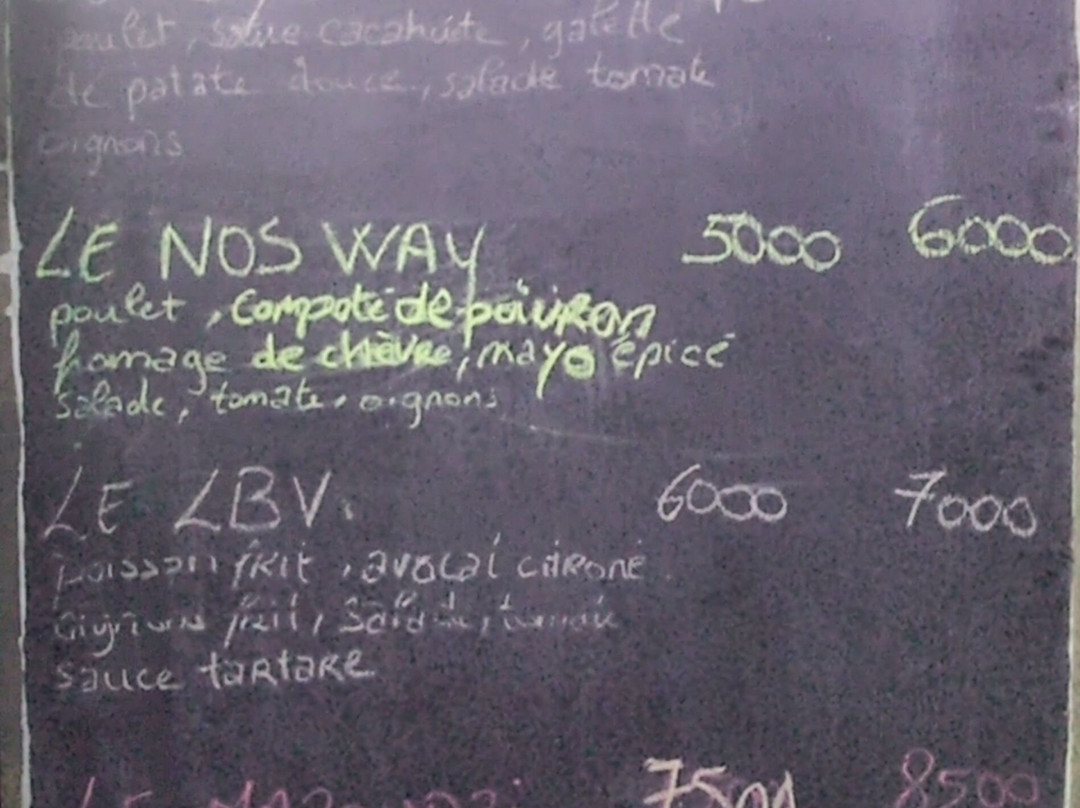 poulet, sauce cacahuète, galette
de patate douce, salade tomate
oignons
LE NOS WAY 5000 6000
poulet, compote de poivron
fromage de chèvre, mayo épicé
salade, tomate, oignons
LE LBV. 6000 7000
poisson frit, avocat citroné
oignons frit, salade, tomate
sauce tartare
LE 7500 8500